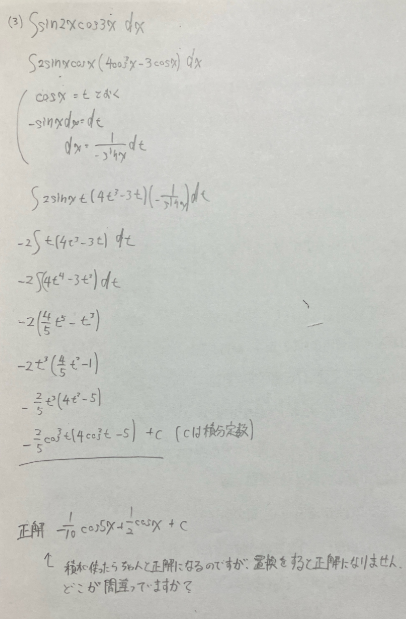 (3) ∫sin2xcos3x dx
∫2sinxcosx(4cos³x-3cosx) dx
cosx=tとおく
-sinxdx=dt
dx=1/-sinx dt
∫2sinx t(4t³-3t)(-1/sinx)dt
-2∫t(4t³-3t) dt
-2∫(4t⁴-3t²)dt
-2(4/5 t⁵-t³)
-2t³(4/5 t²-1)
-2/5 t³(4t²-5)
-2/5 cos³t(4cos²t-5) +C (Cは積分定数)
正解 -1/10 cos5x+1/2 cosx+C
↑ 積和使ったらちゃんと正解になるのですが、置換をすると正解になりません。
どこが間違っていますか?